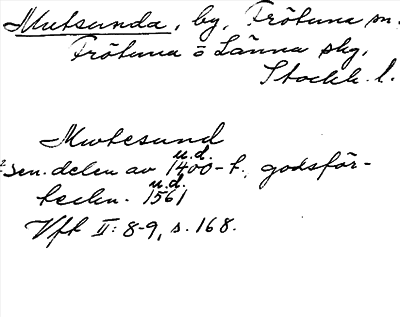 Mutsunda, by, Frötuna sn.
Frötuna o Länna skg,
Stockh. l.
Mwtesund
u.d.
sen. delen av 1400-t., godsför-
u.d.
teckn. 1561
Vfk II: 8-9, s. 168.